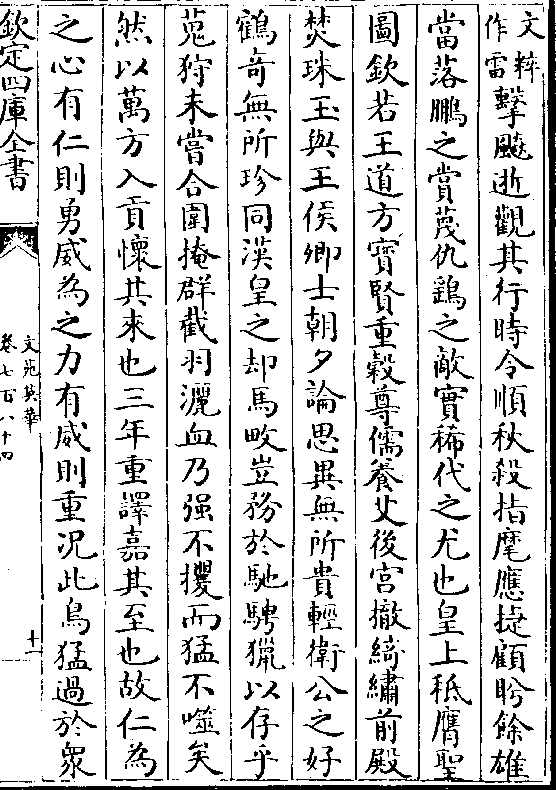 文粹作雷擊飈逝觀其行時令順秋殺指麾應捷顧盻餘雄
當落鵬之賞蔑仇鵶之敵實稀代之尤也皇上秪膺聖
圖欽若王道方寳賢重榖尊儒養艾後宮撤綺繡前殿
焚珠玉與王侯卿士朝夕論思異無所貴輕衛公之好
鶴奇無所珍同漢皇之却馬畋豈務於馳騁獵以存乎
蒐狩未嘗合圍掩群截羽灑血乃强不攫而猛不噬矣
然以萬方入貢懷其來也三年重譯嘉其至也故仁為
之心有仁則勇威為之力有威則重况此鳥猛過於衆
欽定四庫全書
文苑英華
卷七百八十四
十二